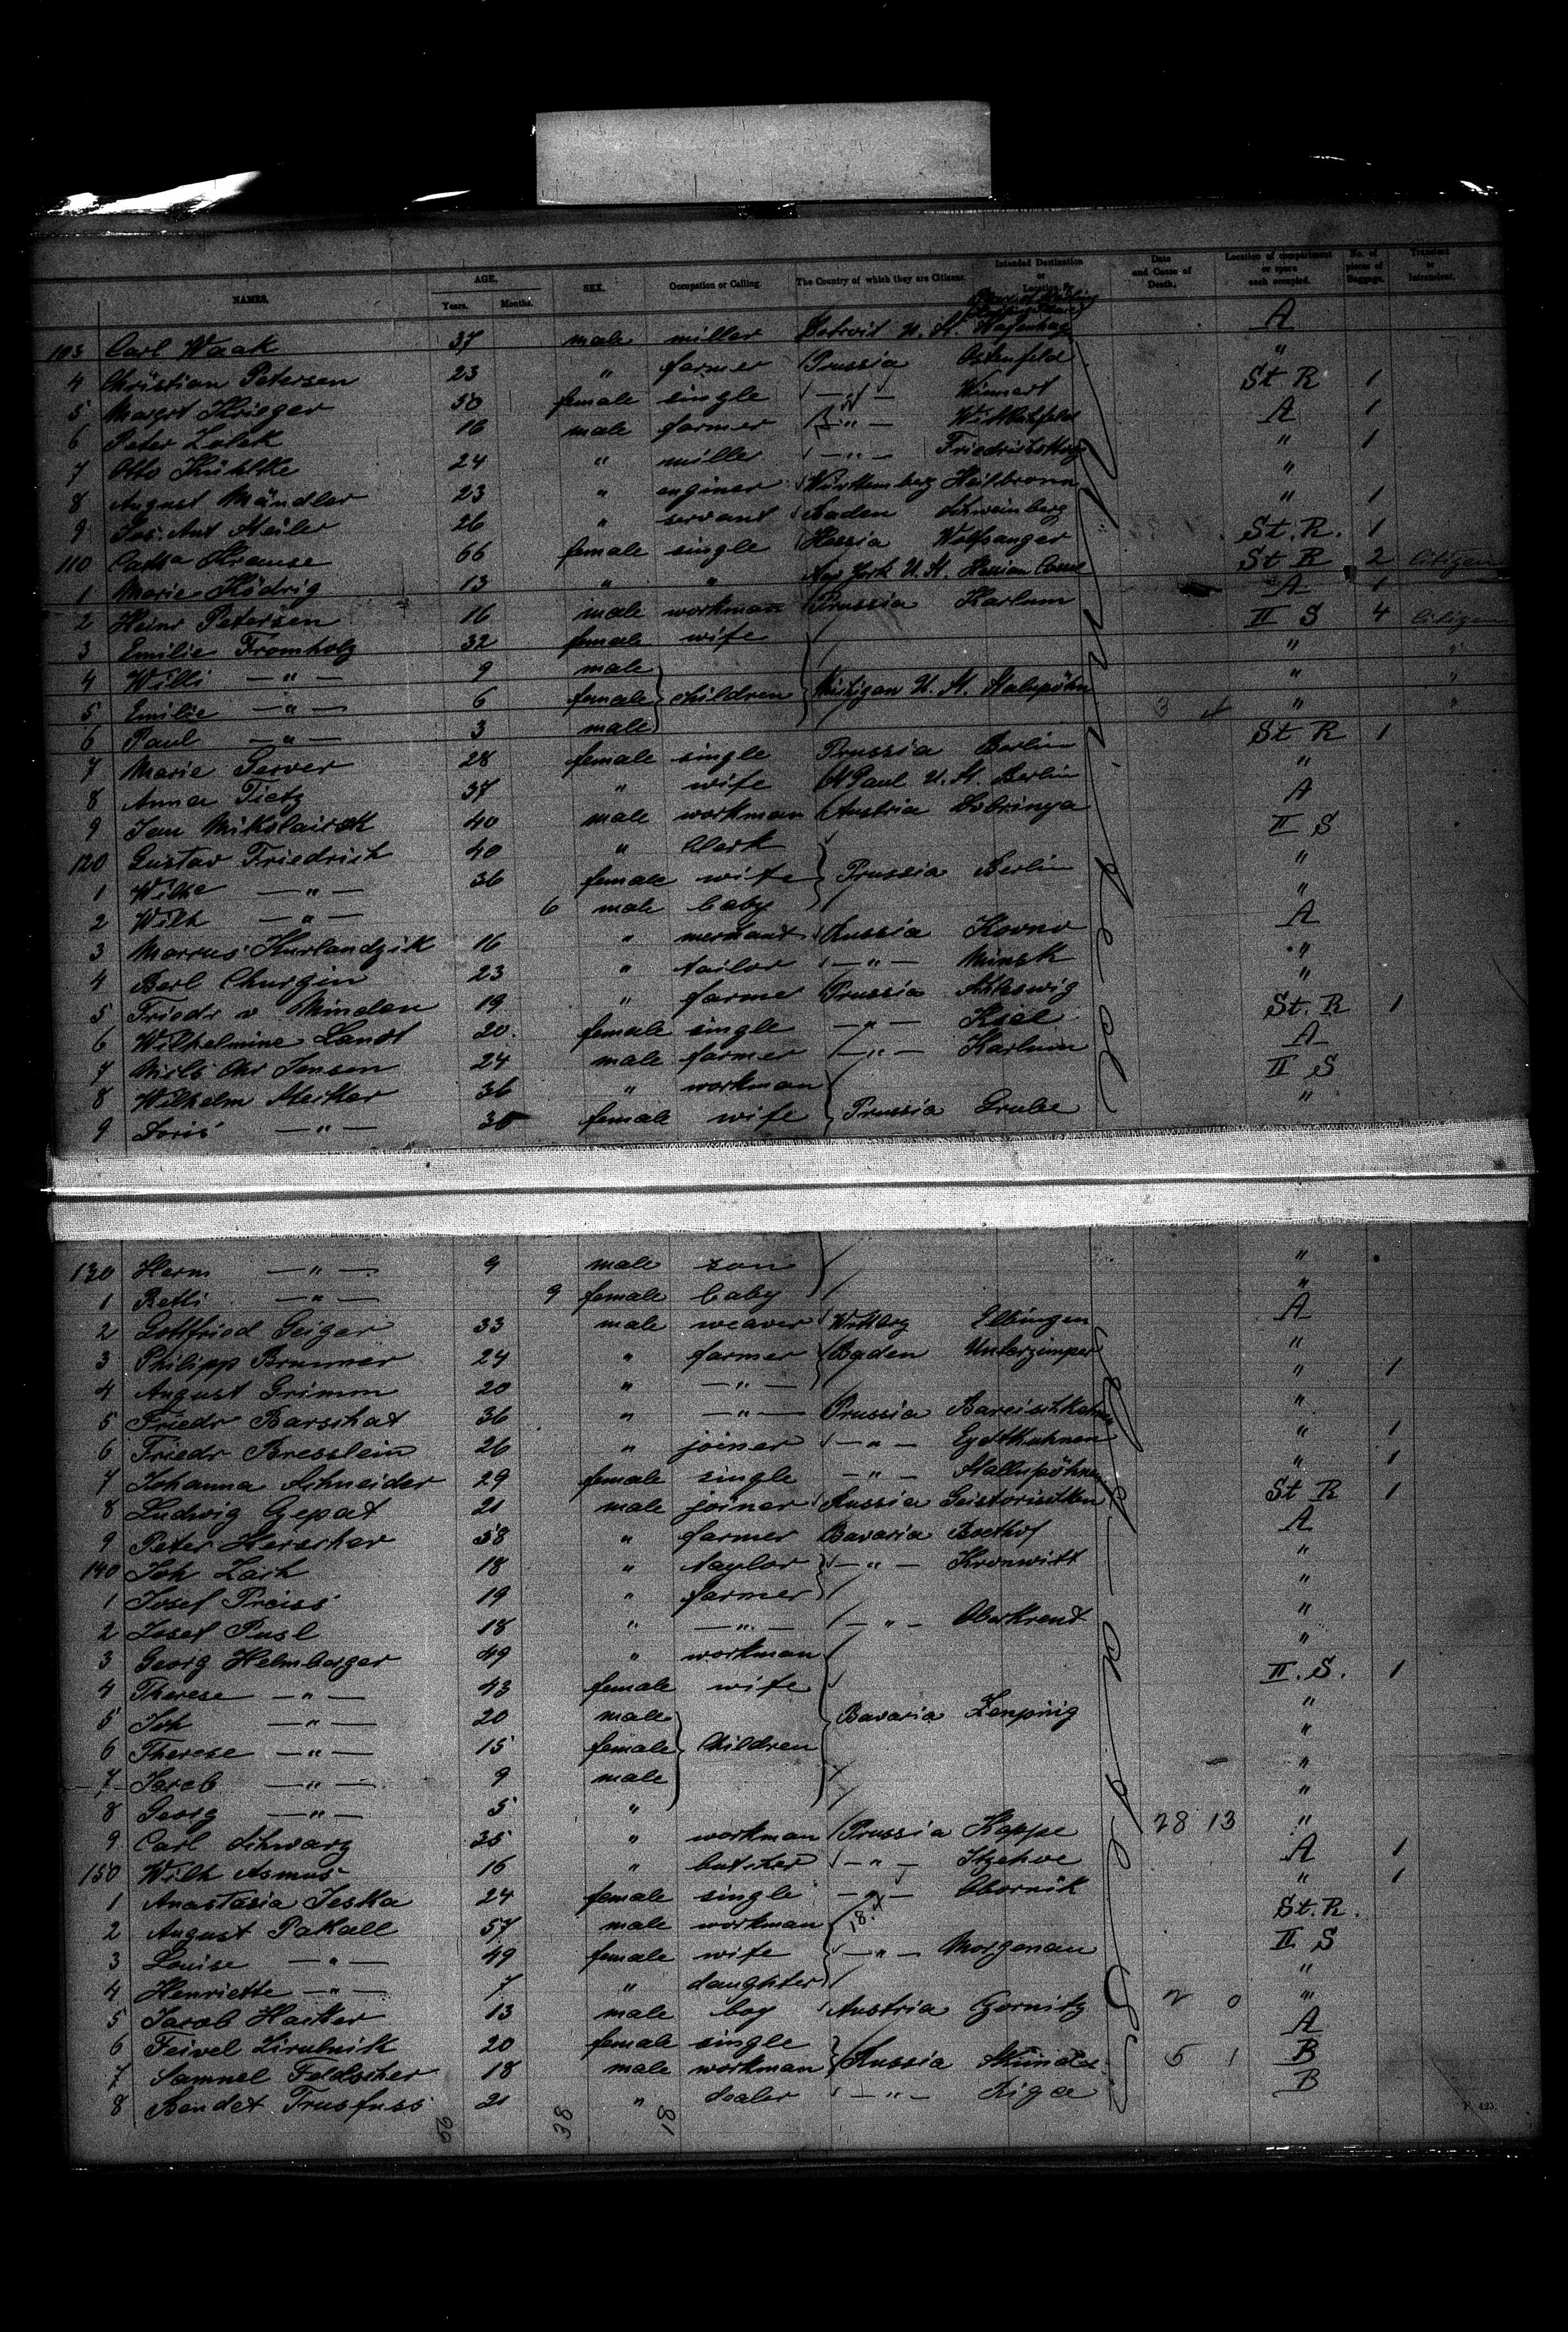 NAMES. AGE. Years. Months. SEX. Occupation or Calling. The Country of which they are Citizens. Intended Destination or Location Date and Cause of Death. Location of compartment or space each occupied. No. of pieces of Baggage. Transient or Intransient.
103 Carl Waak 37 male miller Detroit U. St. A
4 Christian Petersen 23 " farmer Prussia Ostenfeld "
5 Margrt Krieger 50 female single — " — Winnert St R 1
6 Peter 16 male farmer — " — A 1
7 Otto Kühlke 24 " miller — " — " 1
8 August Mändler 23 " enginer Württemberg Heilbronn "
9 Jos. Ant 26 " servant Baden Schweinberg " 1
110 Catha Krause 66 female single Hessia Wolfsanger St. R. 1
1 Marie Ködrig 13 " " New York U. St. Hessian Cassel St R 2 Citizen
2 Heinr Petersen 16 male workman Prussia Karlum A 1
3 Emilie Fromholz 32 female wife II S 4 Citizen
4 Willi — " — 9 male "
5 Emilie — " — 6 female children Michigan U. St. " "
6 Paul — " — 3 male 3 " "
7 Marie Gerver 28 female single Prussia Berlin St R 1
8 Anna Tietz 37 " wife St Paul U. St. Berlin "
9 Jan 40 male workman Austria A
120 Gustav Friedrich 40 " Clerk II S
1 Wilhe — " — 36 female wife Prussia Berlin "
2 Wilh — " — 6 male baby "
3 Marcus Kurlandzik 16 " merchant Russia Kovno A
4 Berl Churgin 23 " tailor — " — Minsk "
5 Friedr v Minden 19 " farmer Prussia Schleswig "
6 Wilhelmine Landt 20 female single — " — Kiel St. R 1
7 Niels Chr Jensen 24 male farmer — " — Karlum A
8 Wilhelm 36 " workman II S
9 Doris — " — 30 female wife Prussia Grube "
130 Herm — " — 9 male son "
1 Betti — " — 9 female baby "
2 Gottfried Geiger 33 male weaver Ebingen A
3 Philipp Brunner 24 " farmer Baden "
4 August Grimm 20 " — " — " 1
5 Friedr Barschat 36 " — " — Prussia "
6 Friedr Bresslein 26 " joiner — " — Eydtkuhnen " 1
7 Johanna Schneider 29 female single — " — Stallupöhnen " 1
8 Ludwig Gepat 21 male joiner Russia St R 1
9 Peter 58 " farmer Bavaria A
140 Joh Zach 18 " taylor — " — Kronwitt "
1 Josef Preiss 19 " farmer "
2 Josef Pusl 18 " — " — — " — "
3 Georg Helmberger 49 " workman "
4 Therese — " — 43 female wife II. S. 1
5 Joh — " — 20 male Bavaria "
6 Therese — " — 15 female Children "
7 Jacob — " — 9 male "
8 Georg — " — 5 " "
9 Carl Schwarz 35 " workman Prussia Koppe 28 13 "
150 Wilh Asmus 16 " butcher — " — Itzehoe A 1
1 Anastasia Jeska 24 female single — " — Obornik " 1
2 August Pakall 57 male workman St. R.
3 Louise — " — 49 female wife — " — Morgenau II S
4 Henriette — " — 7 " daughter "
5 Jacob Hacker 13 male boy Austria 2 0 "
6 Feivel 20 female single A
7 Samuel Feldscher 18 male workman Russia 5 1 B
8 Bendet Trusfuss 21 " dealer — " — Riga B
38 18
F. 425.